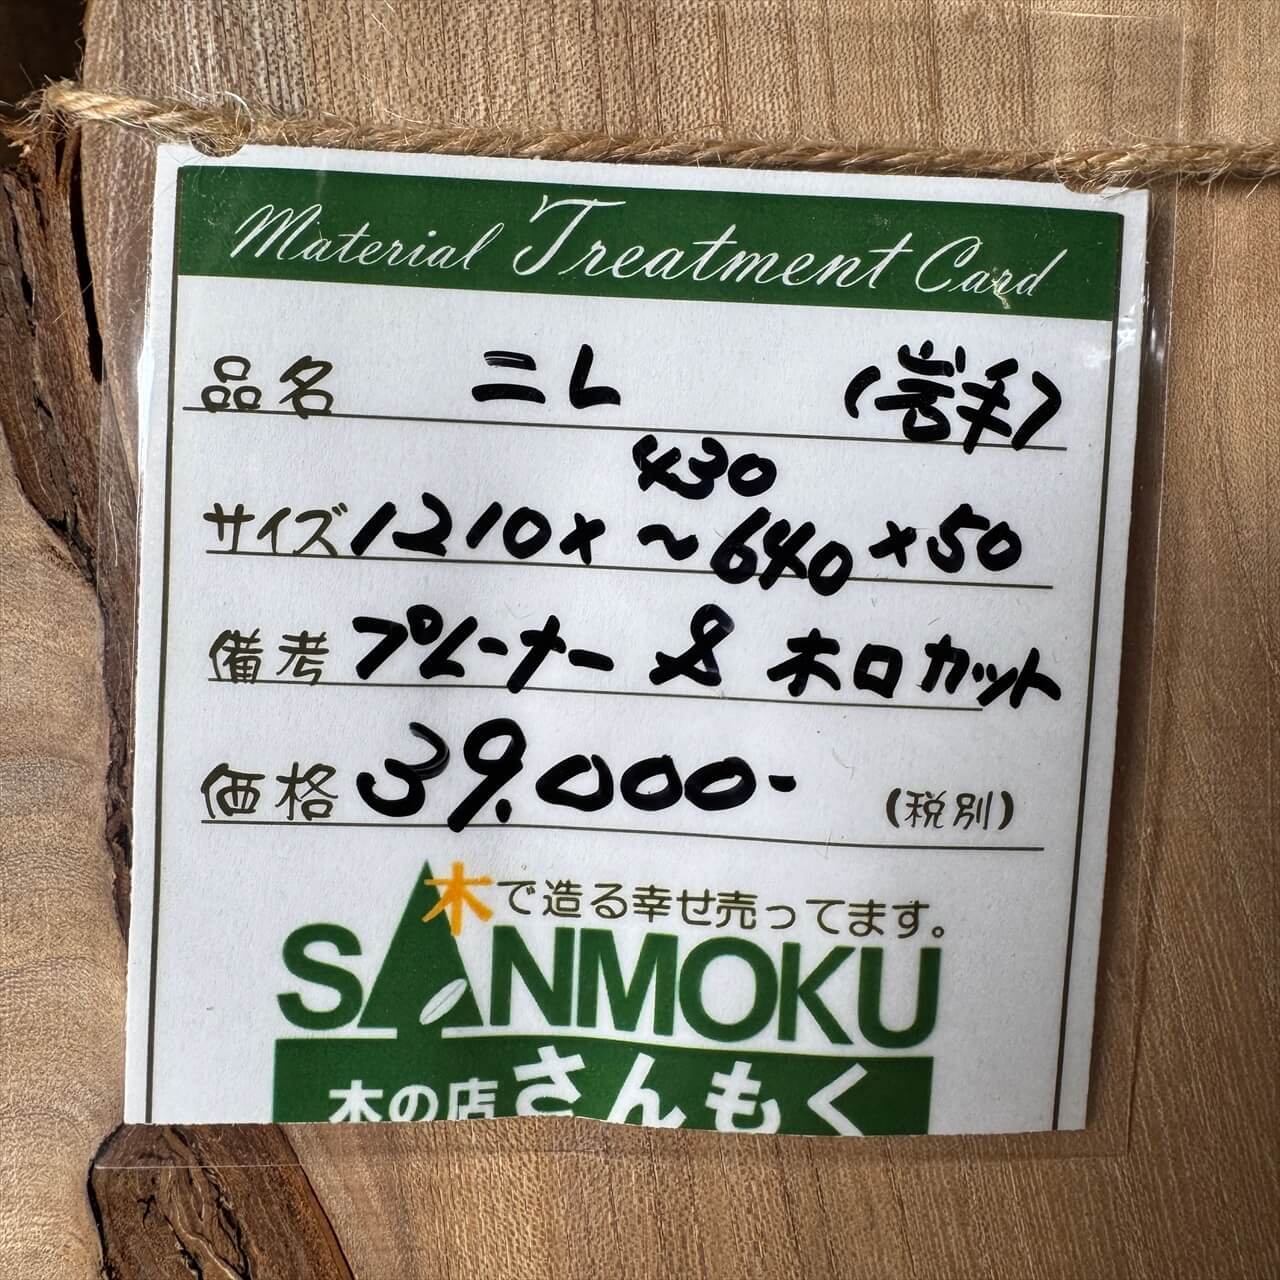 Material Treatment Card
品名 ニレ (岩手)
サイズ 1210 × 430 ～ 640 × 50
備考 プレーナー & 木口カット
価格 39,000- (税別)
木で造る幸せ売ってます。
SANMOKU
木の店 さんもく